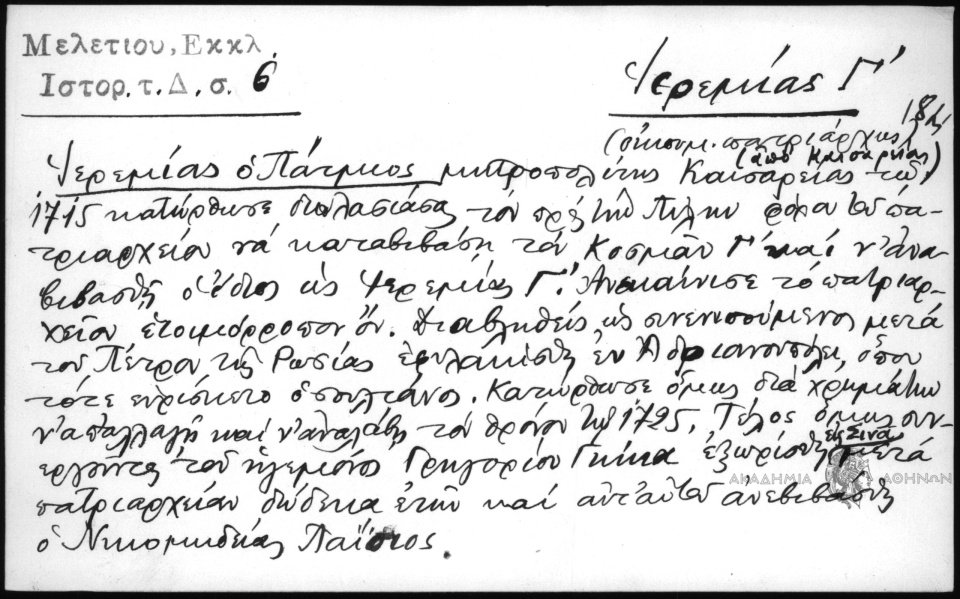 Μελετιου, Εκκλ.
Ιστορ. τ. Δ. σ. 6
Ἱερεμίας Γ΄
(οἰκουμ. πατριάρχης)
(ἀπό Καισαρείας)
Ἱερεμίας ὁ Πάτμιος μητροπολίτης Καισαρείας τῷ
1715 κατώρθωσε διπλασιάσας τόν πρός τήν Πύλην φόρον τοῦ πα-
τριαρχείου νά καταβιβάσῃ τόν Κοσμᾶν Γ΄ καί ν' ἀνα-
βιβασθῇ ὁ ἴδιος ὡς Ἱερεμίας Γ΄. Ἀνεκαίνισε τό πατριαρ-
χεῖον ἑτοιμόρροπον ὄν. Διαβληθείς ὡς συνεννοούμενος μετά
τοῦ Πέτρου τῆς Ρωσίας ἐφυλακίσθη ἐν Ἀδριανουπόλει, ὅπου
τότε εὑρίσκετο ὁ σουλτάνος. Κατώρθωσε ὅμως διά χρημάτων
ν' ἀπαλλαγῇ καί ν' ἀναλάβῃ τόν θρόνον τῷ 1725. Τέλος ὅμως συν-
εργοῦντος τοῦ ἡγεμόνος Γρηγορίου Γκίκα ἐξωρίσθη εἰς Σινᾶ μετά
πατριαρχείαν δώδεκα ἐτῶν καί ἀντ' αὐτοῦ ἀνεβιβάσθη
ὁ Νικομηδείας Παΐσιος.
ΑΚΑΔΗΜΙΑ ΑΘΗΝΩΝ